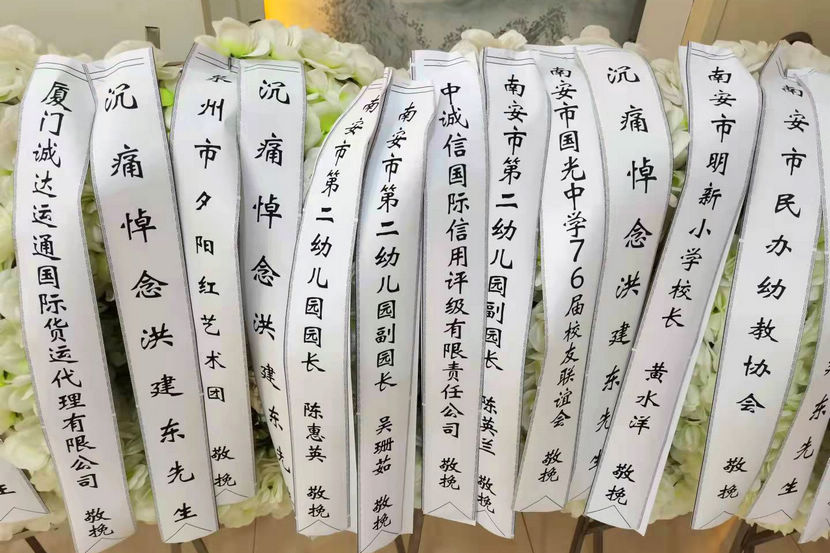 厦门诚达运通国际货运代理有限公司 敬挽
沉痛悼念洪建东先生
泉州市夕阳红艺术团 敬挽
沉痛悼念洪建东先
南安市第二幼儿园园长 陈惠英 敬挽
南安市第二幼儿园副园长 吴珊茹 敬挽
中诚信国际信用评级有限责任公司 敬挽
南安市第二幼儿园副园长 陈英兰 敬挽
南安市国光中学76届校友联谊会 敬挽
沉痛悼念洪建东先生
南安市明新小学校长 黄水洋 敬挽
南安市民办幼教协会 敬挽
生